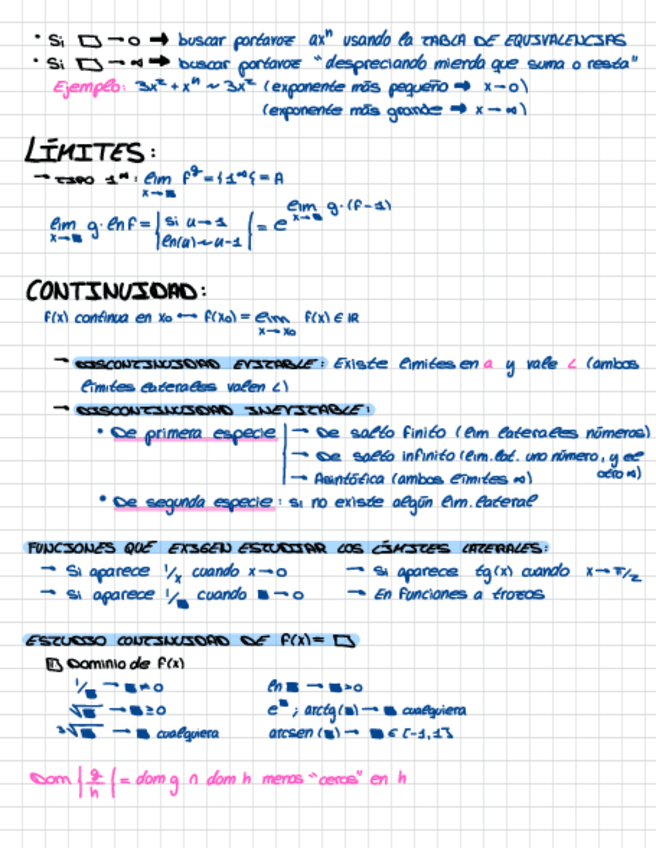 • Si □ → 0 ➡ buscar portavoz axⁿ usando la TABLA DE EQUIVALENCIAS
• Si □ → ∞ ➡ buscar portavoz "despreciando mierda que suma o resta"
Ejemplo: 3x² + xⁿ ~ 3x² (exponente más pequeño ➡ x→0)
(exponente más grande ➡ x→∞)
LÍMITES:
→ TIPO 1^∞: lim x→■ f^g = {1^∞} = A
lim x→■ g·ln f = | si u→1 ln(u)~u-1 | = e^(lim x→■ g·(f-1))
CONTINUIDAD:
f(x) continua en x₀ ↔ f(x₀) = lim x→x₀ f(x) ∈ IR
→ DISCONTINUIDAD EVITABLE: Existe límites en a y vale L (ambos
límites laterales valen L)
→ DISCONTINUIDAD INEVITABLE:
• De primera especie → De salto finito (lim laterales números)
→ De salto infinito (lim. lat. uno número, y el otro ∞)
→ Asintótica (ambos límites ∞)
• De segunda especie: si no existe algún lim. lateral
FUNCIONES QUE EXIGEN ESTUDIAR LOS LÍMITES LATERALES:
→ Si aparece 1/x cuando x→0 → Si aparece tg(x) cuando x→π/2
→ Si aparece 1/■ cuando ■→0 → En funciones a trozos
ESTUDIO CONTINUIDAD DE f(x)= □
1 Dominio de f(x)
1/■ → ■≠0 ln ■ → ■>0
√■ → ■≥0 e^■; arctg(■) → ■ cualquiera
³√■ → ■ cualquiera arcsen(■) → ■ ∈ [-1,1]
Dom {g/h} = dom g ∩ dom h menos "ceros" en h